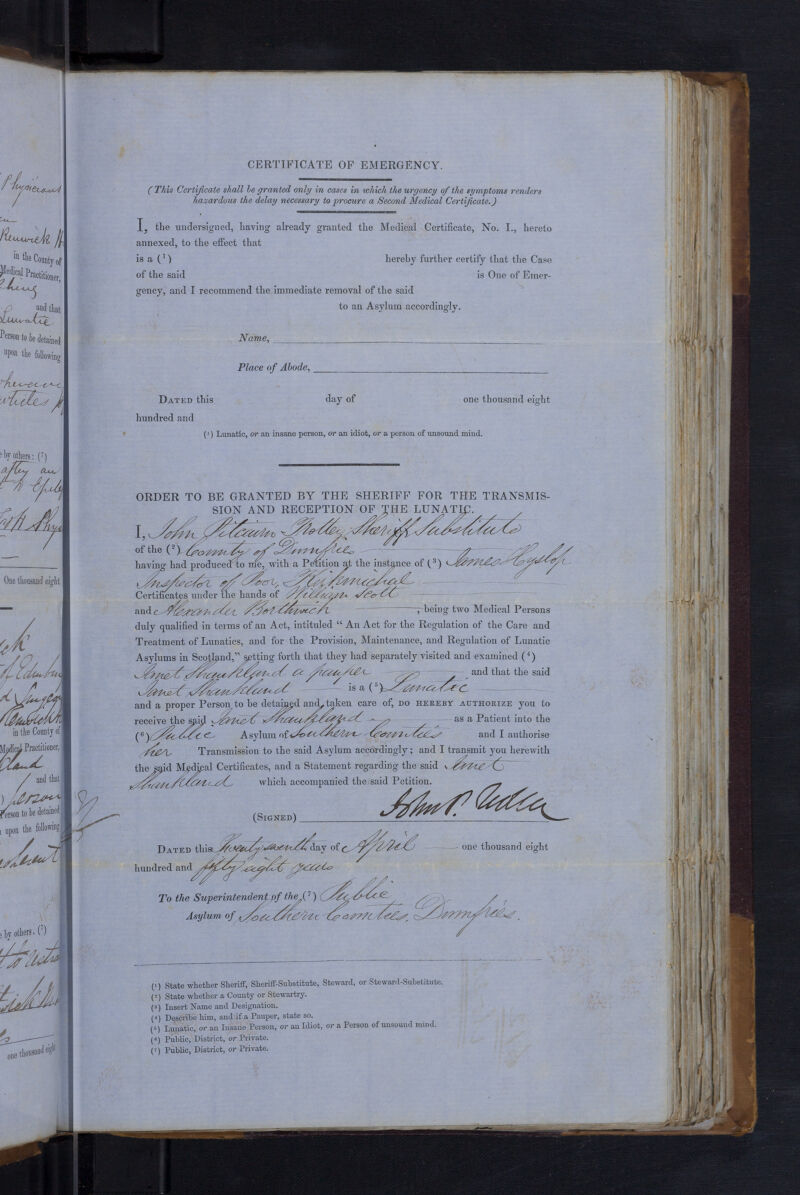 Physicians
Renwick
in the County of
Medical Practitioner,
and that
Lunatic
Person to be detained
upon the following
by others: (7)
after an
One thousand eight
in the County of
Medical Practitioner,
and that
person
Person to be detained
upon the following
by others. (7)
one thousand eight
CERTIFICATE OF EMERGENCY.
(This Certificate shall be granted only in cases in which the urgency of the symptoms renders
hazardous the delay necessary to procure a Second Medical Certificate.)
I, the undersigned, having already granted the Medical Certificate, No. I., hereto
annexed, to the effect that
is a (1) hereby further certify that the Case
of the said is One of Emer-
gency, and I recommend the immediate removal of the said
to an Asylum accordingly.
Name,
Place of Abode,
DATED this day of one thousand eight
hundred and
(1) Lunatic, or an insane person, or an idiot, or a person of unsound mind.
ORDER TO BE GRANTED BY THE SHERIFF FOR THE TRANSMIS-
SION AND RECEPTION OF THE LUNATIC.
I, John Pitcairn Trotter, Sheriff Substitute
of the (2) County of Dumfries
having had produced to me, with a Petition at the instance of (3) James Hyslop
Inspector of Poor, Kirkmichael
Certificates under the hands of William Scott
and Alexander Borthwick, being two Medical Persons
duly qualified in terms of an Act, intituled “ An Act for the Regulation of the Care and
Treatment of Lunatics, and for the Provision, Maintenance, and Regulation of Lunatic
Asylums in Scotland,” setting forth that they had separately visited and examined (4)
Janet Shankland a pauper and that the said
Janet Shankland is a (5) Lunatic
and a proper Person to be detained and taken care of, DO HEREBY AUTHORIZE you to
receive the said Janet Shankland as a Patient into the
(6) Public Asylum of Southern Counties and I authorise
her Transmission to the said Asylum accordingly; and I transmit you herewith
the said Medical Certificates, and a Statement regarding the said Janet
Shankland which accompanied the said Petition.
(SIGNED) John P. Trotter
DATED this Twenty seventh day of April one thousand eight
hundred and fifty eight years
To the Superintendent of the (7) Public
Asylum of Southern Counties. Dumfries.
(1) State whether Sheriff, Sheriff-Substitute, Steward, or Steward-Substitute.
(2) State whether a County or Stewartry.
(3) Insert Name and Designation.
(4) Describe him, and if a Pauper, state so.
(5) Lunatic, or an Insane Person, or an Idiot, or a Person of unsound mind.
(6) Public, District, or Private.
(7) Public, District, or Private.